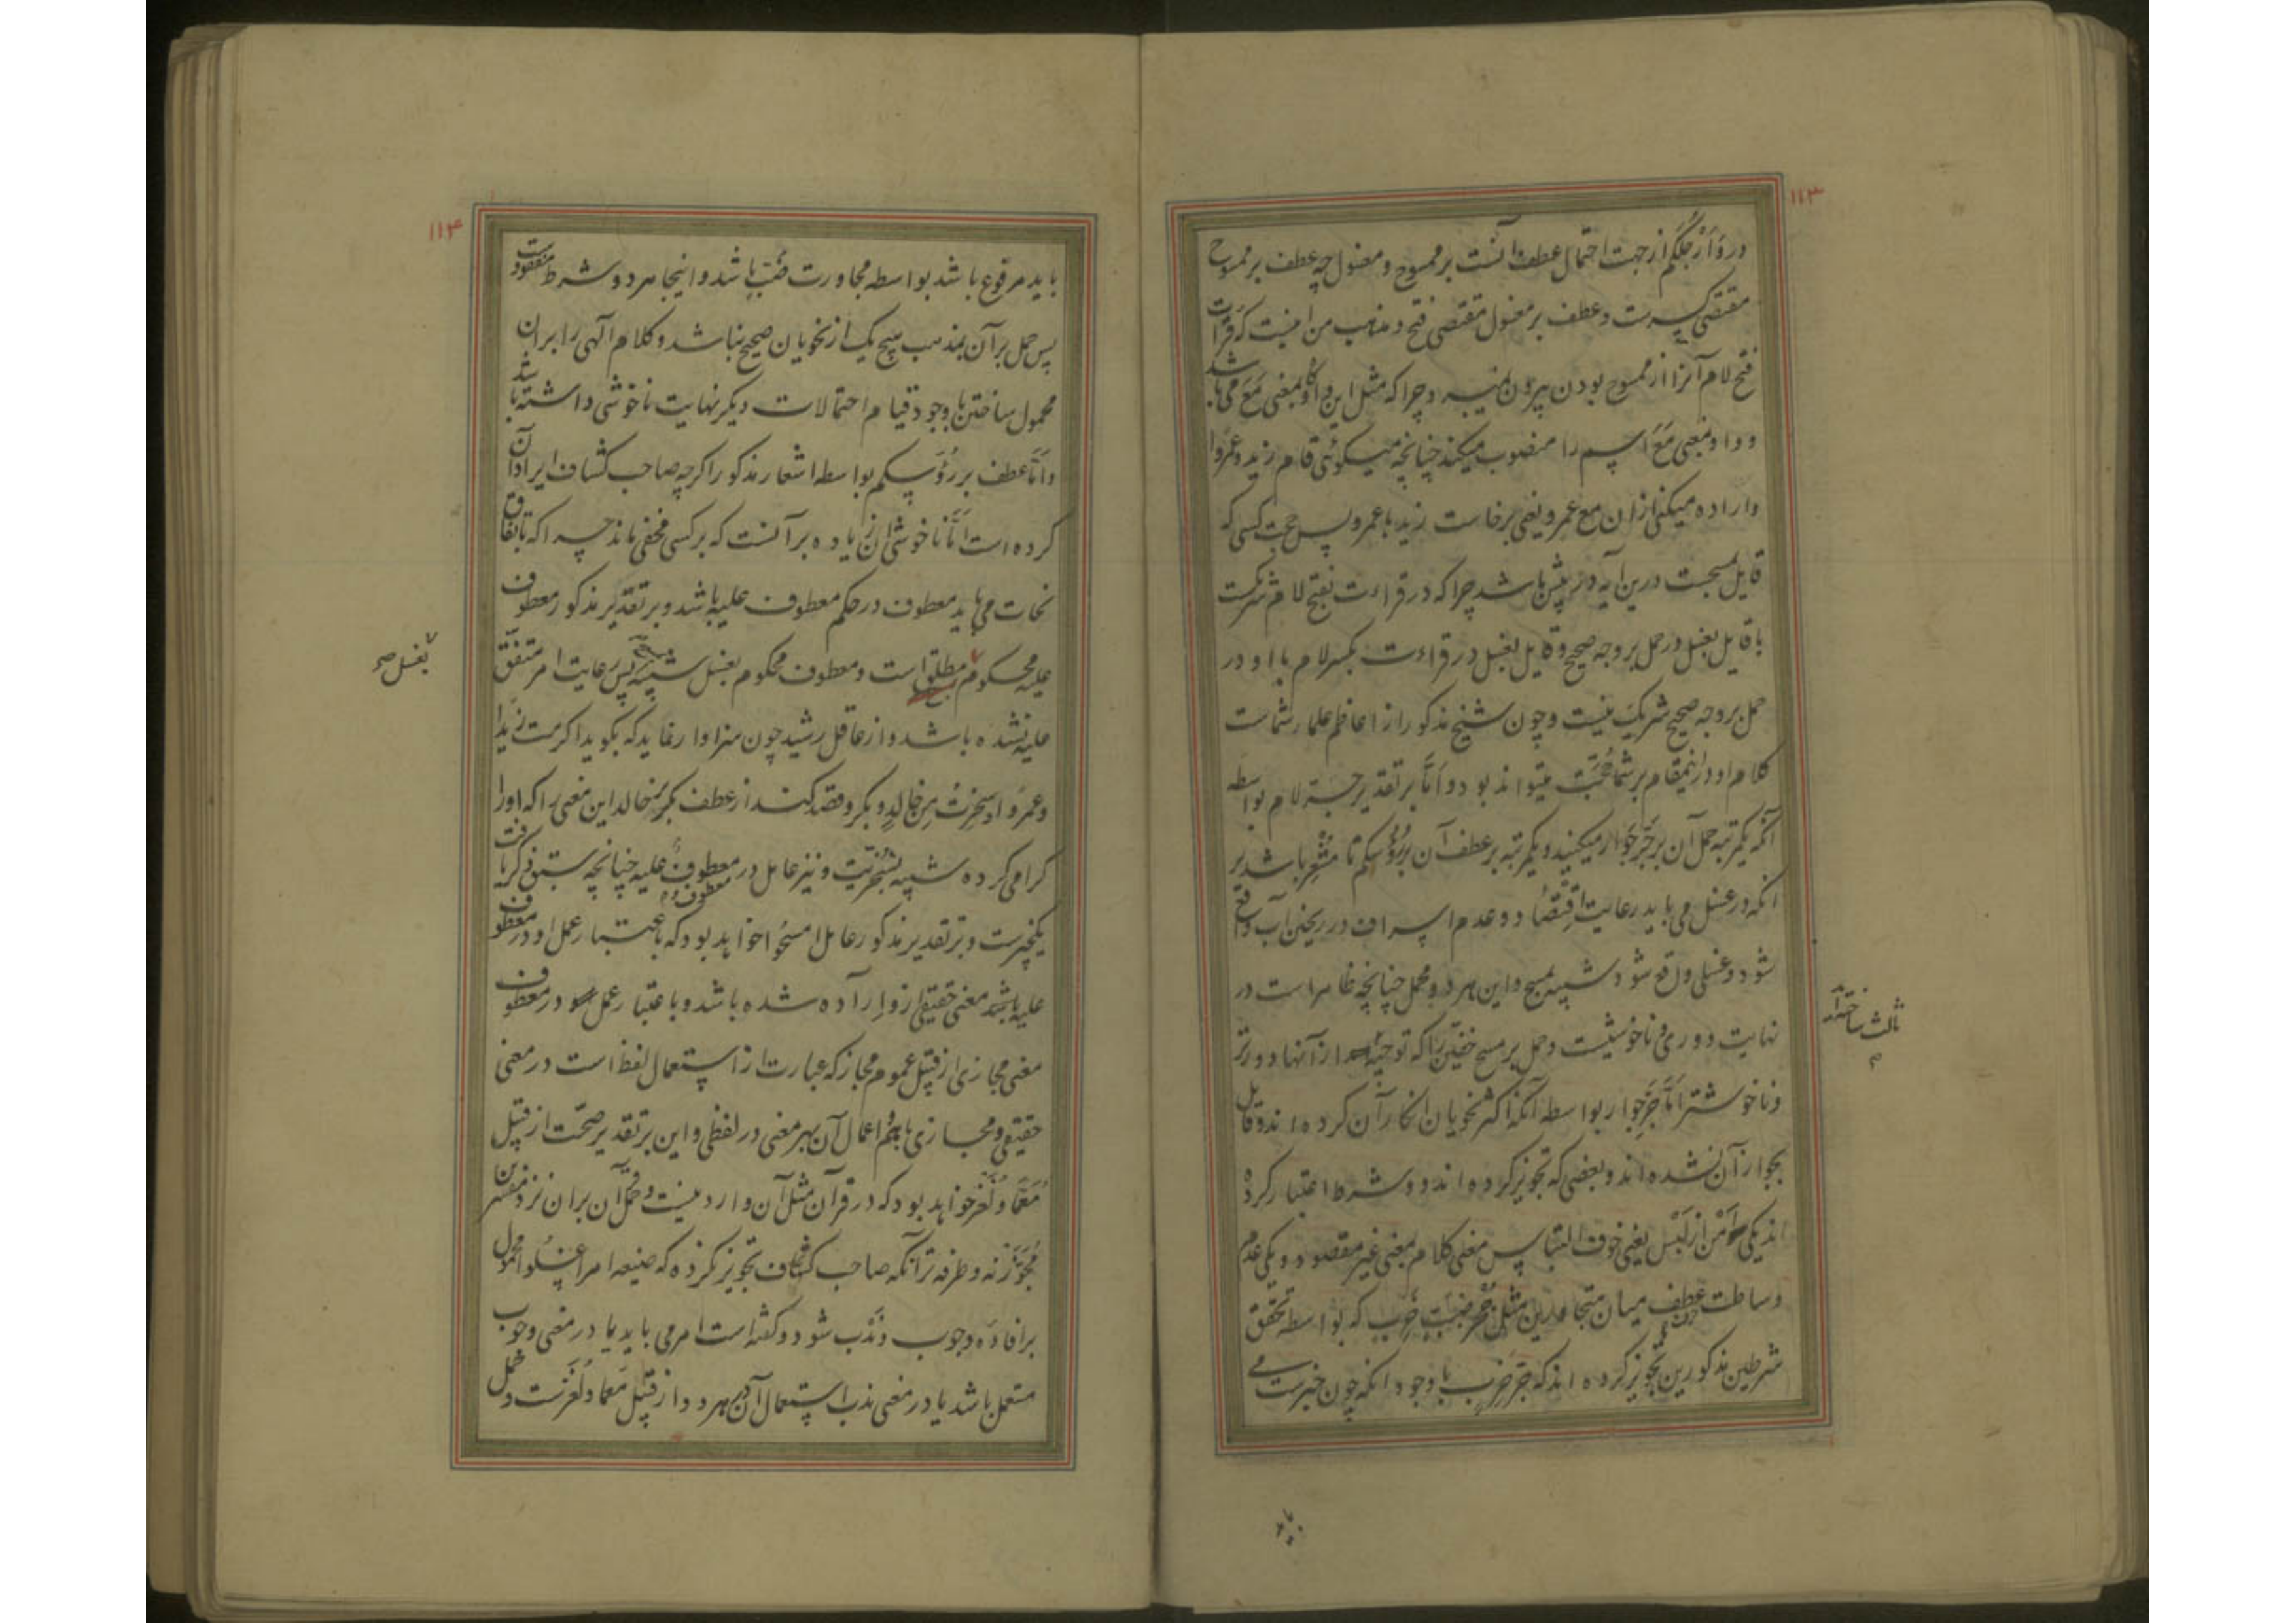 ۱۱۳
در وَاَرْجُلَكُم از جهت احتمال عطف آنست بر ممسوح و مغسول چه عطف بر ممسوح
مقتضی کسرست و عطف بر مغسول مقتضی فتح و مذهب من اینست که قرات
فتح لام آنرا از ممسوح بودن بیرون نمیبرد چرا که مثل این واو بمعنی مَعَ می باشد
و واو بمعنی مَعَ اسم را منصوب میکند چنانچه میگوئی قام زید و عمرًوا
و اراده میکنی ازان مع عمرو یعنی برخاست زید با عمرو پس حجت کسی که
قایل بمسحست درین آیه در پیش باشد چرا که در قراءت بفتح لام شریکست
با قایل بغسل در حمل بر وجه صحیح و قایل بغسل در قراءت بکسر لام با او در
حمل بر وجه صحیح شریک نیست و چون شیخ مذکور از اعاظم علماء شماست
کلام او درینمقام بر شما حُجَّت میتواند بود و اَمَّا بر تقدیر جرّ لام بواسطه
آنکه یکمرتبه حمل آن بر جَرِّ جَوار میکنید و یکمرتبه بر عطف آن بر رُؤُسِکُم تا مُشْعِر باشد بر
آنکه در غسل می باید رعایت اِقْتِصاد و عدم اسراف در ریختن آب واقع
شود و غسلی واقع شود شبیه بمسح و این هر دو محمل چنانچه ظاهر است در
نهایت دوری و ناخوشیست و حمل بر مسح خفّین را که توجیه از آنها دورتر
و ناخوشتر اَمَّا جَرِّ جوار بواسطه آنکه اکثر نحویان انکار آن کرده اند و قایل
بجواز آن نشده اند و بعضی که تجویز کرده اند دو شرط اعتبار کرده
اند یکی اَمْن از لَبْس یعنی خوف التباس معنی کلام بمعنی غیر مقصود و یکی عدم
وساطت عطف میان متجاورین مثل جُحْرُ ضَبٍّ خَرِبٍ که بواسطه تحقق
شرطین مذکورین تجویز کرده اند که جَرِّ خَرِب با وجود آنکه چون خبرست می
ثالث ساخته اند
۱۱۴
باید مرفوع باشد بواسطه مجاورت ضَبّ باشد و اینجا هر دو شرط مفقودست
پس حمل بر آن بمذهب هیچ یک از نحویان صحیح نباشد و کلام آلهی را بران
محمول ساختن با وجود قیام احتمالات دیگر نهایت ناخوشی داشته باشد
و اَمَّا عطف بر رُؤُسِکُم بواسطه اشعار مذکور اگرچه صاحب کشاف ایراد آن
کرده است اَمَّا ناخوشی آن زیاده بر آنست که بر کسی مخفی ماند چرا که باتفاق
نحات می باید معطوف در حکم معطوف علیه باشد و بر تقدیر مذکور معطوف
علیه محکوم بمسح مطلق است و معطوف محکوم بغسل شبیه پس رعایت امر متفق
علیه نشده باشد و از عاقل رشید چون سزاوار نماید که بگوید اکرمت زیدا
و عمرًوا و سَخِرْتُ مِن خالدٍ و بکر و قصد کند از عطف بکر بر خالد این معنی را که اورا
گرامی کرده شبیه بسُخْریّت و نیز عامل در معطوف و معطوف علیه چنانچه سبق ذکر یافت
یکچیزست و بر تقدیر مذکور عامل امسحوا خواهد بود که باعتبار عمل او در معطوف
علیه باشد معنی حقیقی ازو اراده شده باشد و باعتبار عمل در معطوف
معنی مجازی از قبیل عموم مجاز که عبارت از استعمال لفظ است در معنی
حقیقی و مجازی باهم اعمال آن بهر معنی در لفظی و این بر تقدیر صحّت از قبیل
مُعَمّا و لُغَز خواهد بود که در قرآن مثل آن وارد نیست و حمل آن بران نزد مفسرین
مُجَوَّز نه و طرفه تر آنکه صاحب کشاف تجویز نکرده که صیغه امر اغسلوا محمول
بر افاده وجوب و نَدْب شود و گفته است امر می باید یا در معنی وجوب
مستعمل باشد یا در معنی ندب استعمال آن در هر دو از قبیل معما و لُغَزست و حمل
بغسل صح